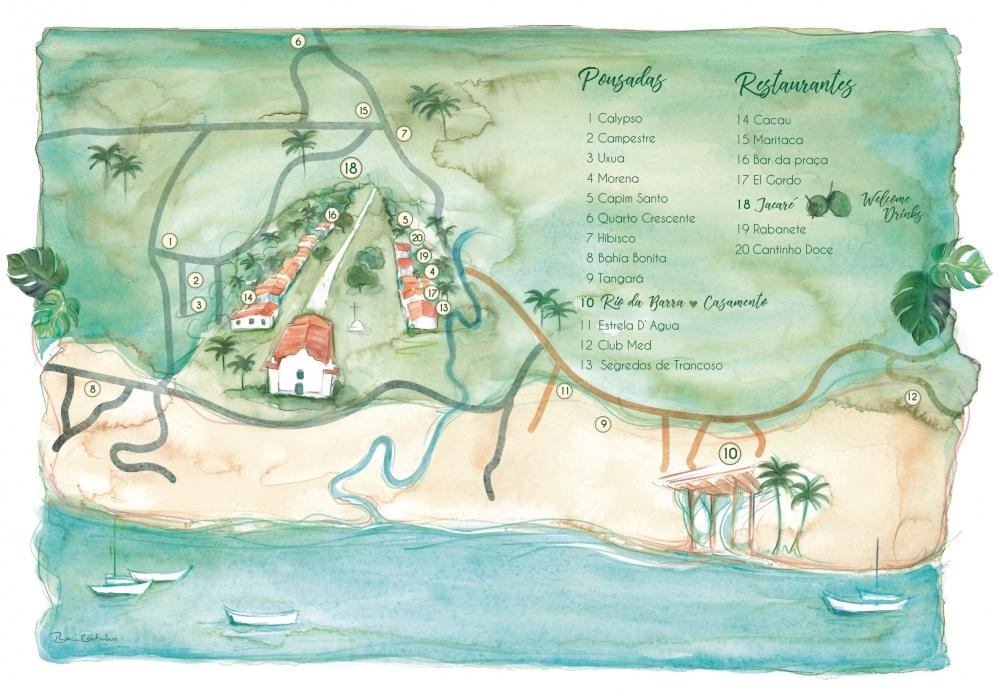 Pousadas
1 Calypso
2 Campestre
3 Uxua
4 Morena
5 Capim Santo
6 Quarto Crescente
7 Hibisco
8 Bahia Bonita
9 Tangará
10 Rio da Barra ♥ Casamento
11 Estrela D' Agua
12 Club Med
13 Segredos de Trancoso
Restaurantes
14 Cacau
15 Maritaca
16 Bar da praça
17 El Gordo
18 Jacaré
Welcome
Drinks
19 Rabanete
20 Cantinho Doce
6
15
7
18
16
5
1
20
19
2
4
17
14
3
13
8
11
12
9
10